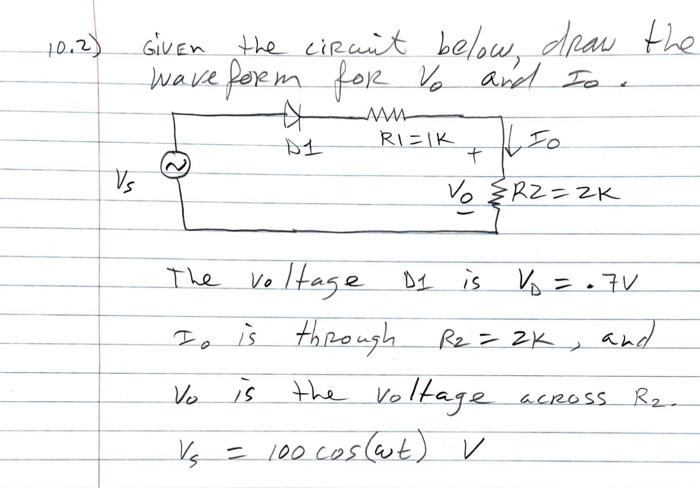 10.2) Given the circuit below, draw the
waveform for Vo and Io.
D1
R1=1K
+
Io
Vs
Vo
R2=2K
-
The voltage D1 is VD = .7V
Io is through R2 = 2K, and
Vo is the voltage across R2.
Vs = 100 cos(ωt) V